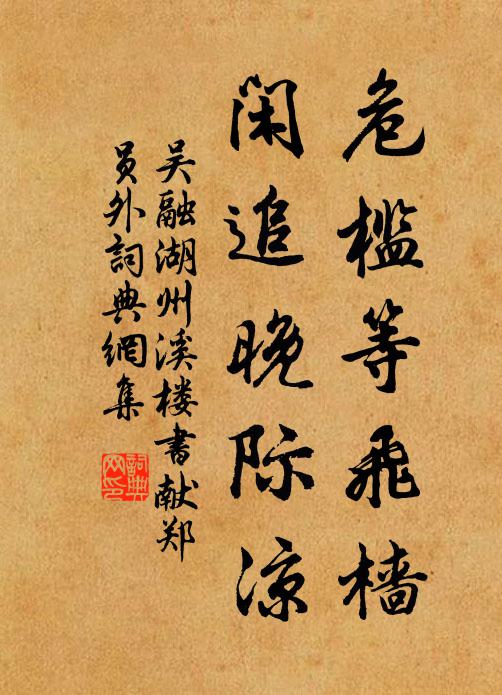 危槛等飛樯
闲追晚际凉
吴融湖州溪楼书献郑
员外詞典網集
詞典网印